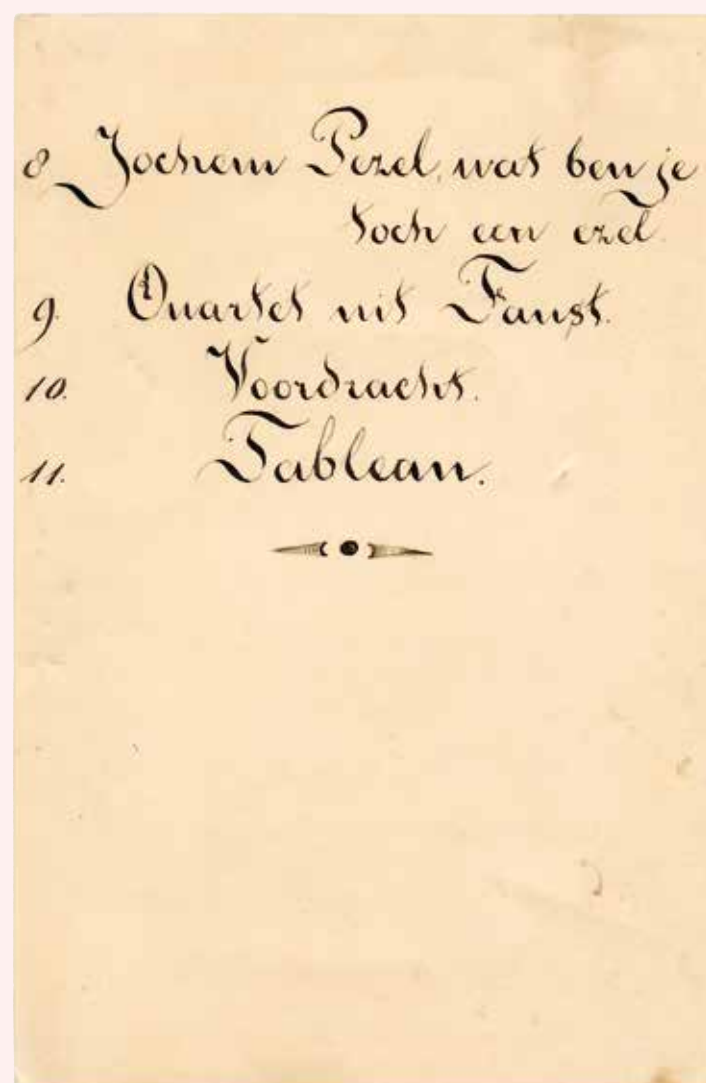 8 Jochem Pezel, wat ben je
toch een ezel.
9. Quartet uit Faust.
10. Voordracht.
11. Tableau.